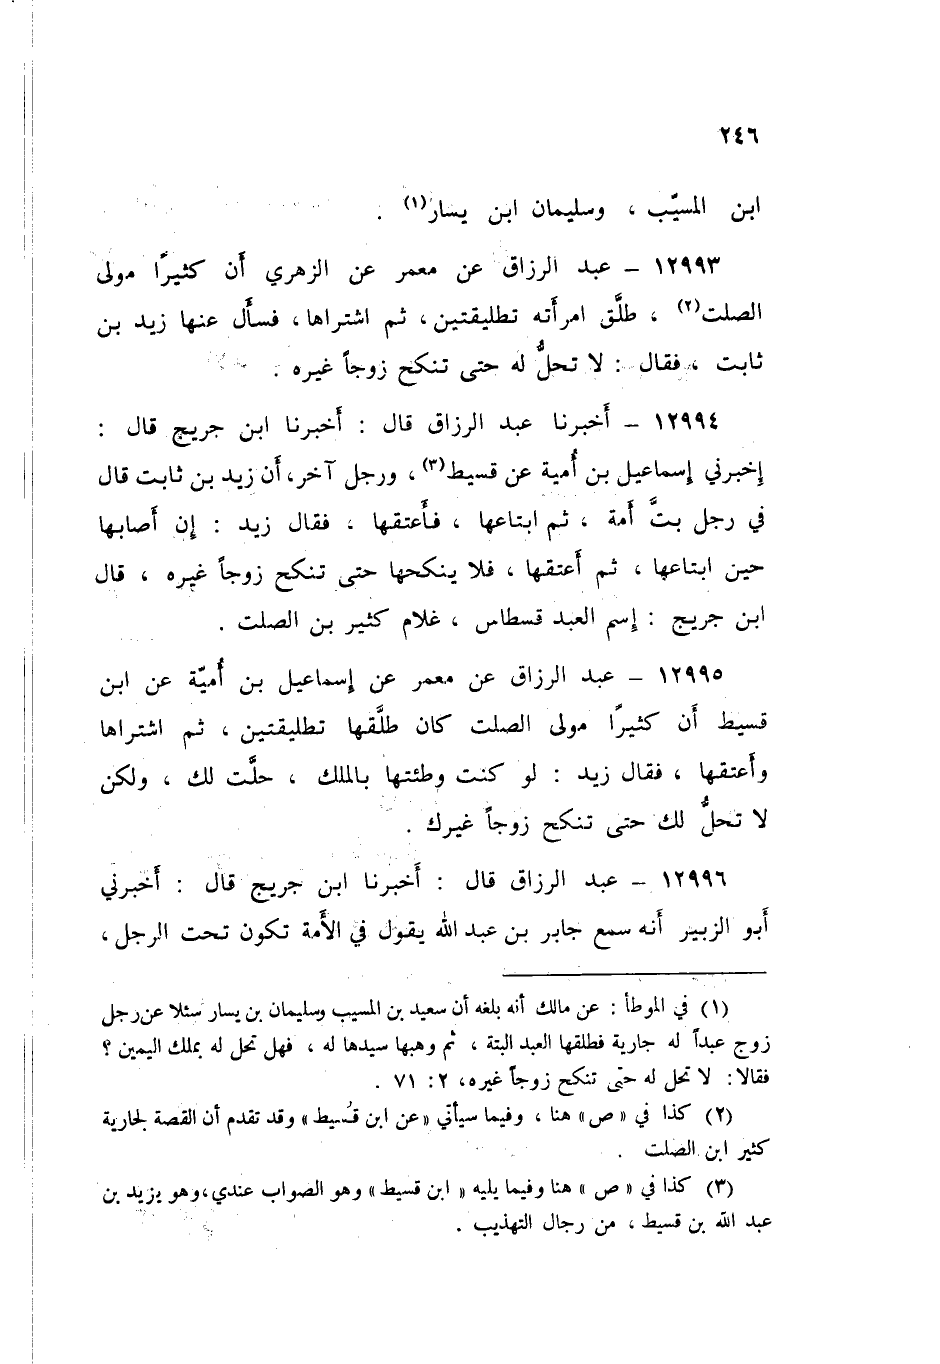 ٢٤٦
ابن المسيّب ، وسليمان ابن يسار(١) .
١٢٩٩٣ – عبد الرزاق عن معمر عن الزهري أَن كثيرًا مولى
الصلت(٢) ، طلَّق امرأَته تطليقتين ، ثم اشتراها ، فسأَل عنها زيد بن
ثابت ، فقال : لا تحلُّ له حتى تنكح زوجاً غيره .
١٢٩٩٤ – أَخبرنا عبد الرزاق قال : أَخبرنا ابن جريج قال :
إخبرني إسماعيل بن أُمية عن قسيط(٣) ، ورجل آخر ، أَن زيد بن ثابت قال
في رجل بتَّ أَمة ، ثم ابتاعها ، فأَعتقها ، فقال زيد : إن أَصابها
حين ابتاعها ، ثم أَعتقها ، فلا ينكحها حتى تنكح زوجاً غيره ، قال
ابن جريج : إسم العبد قسطاس ، غلام كثير بن الصلت .
١٢٩٩٥ – عبد الرزاق عن معمر عن إسماعيل بن أُميّة عن ابن
قسيط أَن كثيرًا مولى الصلت كان طلَّقها تطليقتين ، ثم اشتراها
وأَعتقها ، فقال زيد : لو كنت وطئتها بالملك ، حلَّت لك ، ولكن
لا تحلُّ لك حتى تنكح زوجاً غيرك .
١٢٩٩٦ – عبد الرزاق قال : أَخبرنا ابن جريج قال : أَخبرني
أَبو الزبير أَنه سمع جابر بن عبد الله يقول في الأَمة تكون تحت الرجل ،
(١) في الموطأ : عن مالك أنه بلغه أن سعيد بن المسيب وسليمان بن يسار سئلا عن رجل
زوج عبداً له جارية فطلقها العبد البتة ، ثم وهبها سيدها له ، فهل تحل له بملك اليمين ؟
فقالا : لا تحل له حتى تنكح زوجاً غيره ، ٢ : ٧١ .
(٢) كذا في « ص » هنا ، وفيما سيأتي « عن ابن قُسيط » وقد تقدم أن القصة لجارية
كثير ابن الصلت .
(٣) كذا في « ص » هنا وفيما يليه « ابن قسيط » وهو الصواب عندي ، وهو يزيد بن
عبد الله بن قسيط ، من رجال التهذيب .